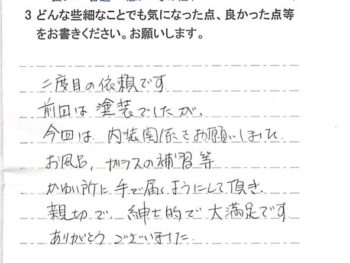 3 どんな些細なことでも気になった点、良かった点等
をお書きください。お願いします。
二度目の依頼です
前回は塗装でしたが、
今回は 内装関係をお願いしまして
お風呂、ガラスの補習等
かゆい所に手で届くようにして頂き、
親切で 紳士的で大満足です
ありがとうございました